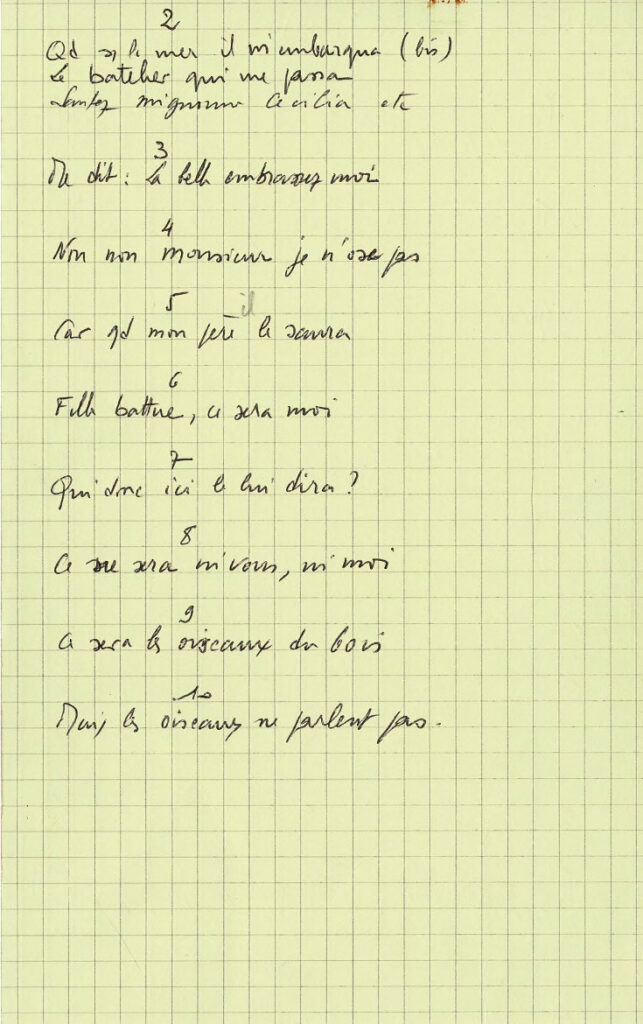 2
Qd sr la mer il m'embarqua (bis)
Le batelier qui me passa
Sautez mignonne Cecilia etc
3
Me dit : la belle embrassez moi
4
Non non monsieur je n'ose pas
5
Car qd mon père il le saura
6
Fille battue, ce sera moi
7
Qui donc ici le lui dira ?
8
Ce ne sera ni vous, ni moi
9
Ce sera les oiseaux du bois
10
Mais les oiseaux ne parlent pas.